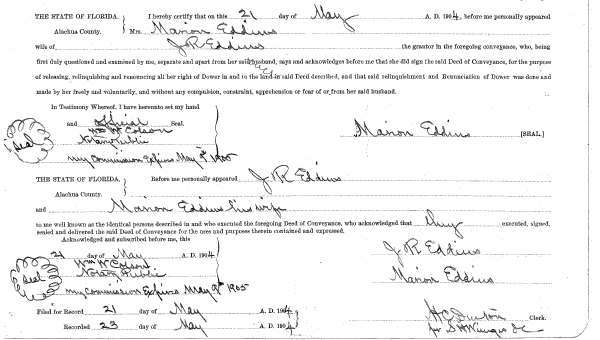 THE STATE OF FLORIDA. } I hereby certify that on this 21 day of May A. D. 1904, before me personally appeared
Alachua County. Mrs. Marion Eddins
wife of J R Eddins the grantor in the foregoing conveyance, who, being
first duly questioned and examined by me, separate and apart from her said husband, says and acknowledges before me that she did sign the said Deed of Conveyance, for the purpose
of releasing, relinquishing and renouncing all her right of Dower in and to the land in said Deed described, and that said relinquishment and Renunciation of Dower was done and
made by her freely and voluntarily, and without any compulsion, constraint, apprehension or fear of or from her said husband.
In Testimony Whereof, I have hereunto set my hand
and official Seal.
Seal Wm W Colson Marion Eddins [SEAL.]
Notary Public
my Commission Expires May 9th 1905
THE STATE OF FLORIDA. } Before me personally appeared J R Eddins
Alachua County.
and Marion Eddins his wife
to me well known as the identical persons described in and who executed the foregoing Deed of Conveyance, who acknowledged that they executed, signed,
sealed and delivered the said Deed of Conveyance for the uses and purposes therein contained and expressed.
Acknowledged and subscribed before me, this
21 day of May A. D. 1904 J R Eddins
Seal Wm W Colson
Notary Public Marion Eddins
my Commission Expires May 9th 1905
Filed for Record 21 day of May A. D. 1904 Clerk.
Recorded 23 day of May A. D. 1904 for